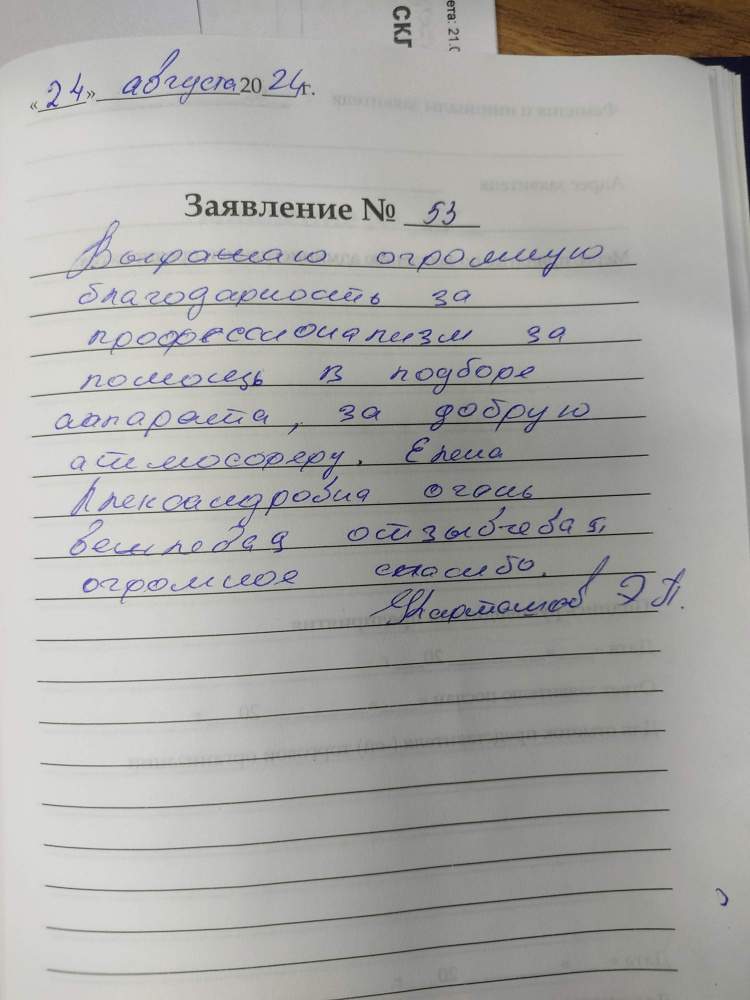 ета: 21.0
СКЛ
«24» августа 2024г.
Заявление № 53
Выражаю огромную
благодарность за
профессионализм за
помощь в подборе
аапарата, за добрую
атмосферу. Елена
Александровна очень
вешливая отзывчевая,
огромное спасибо.
Карташов Э.П.